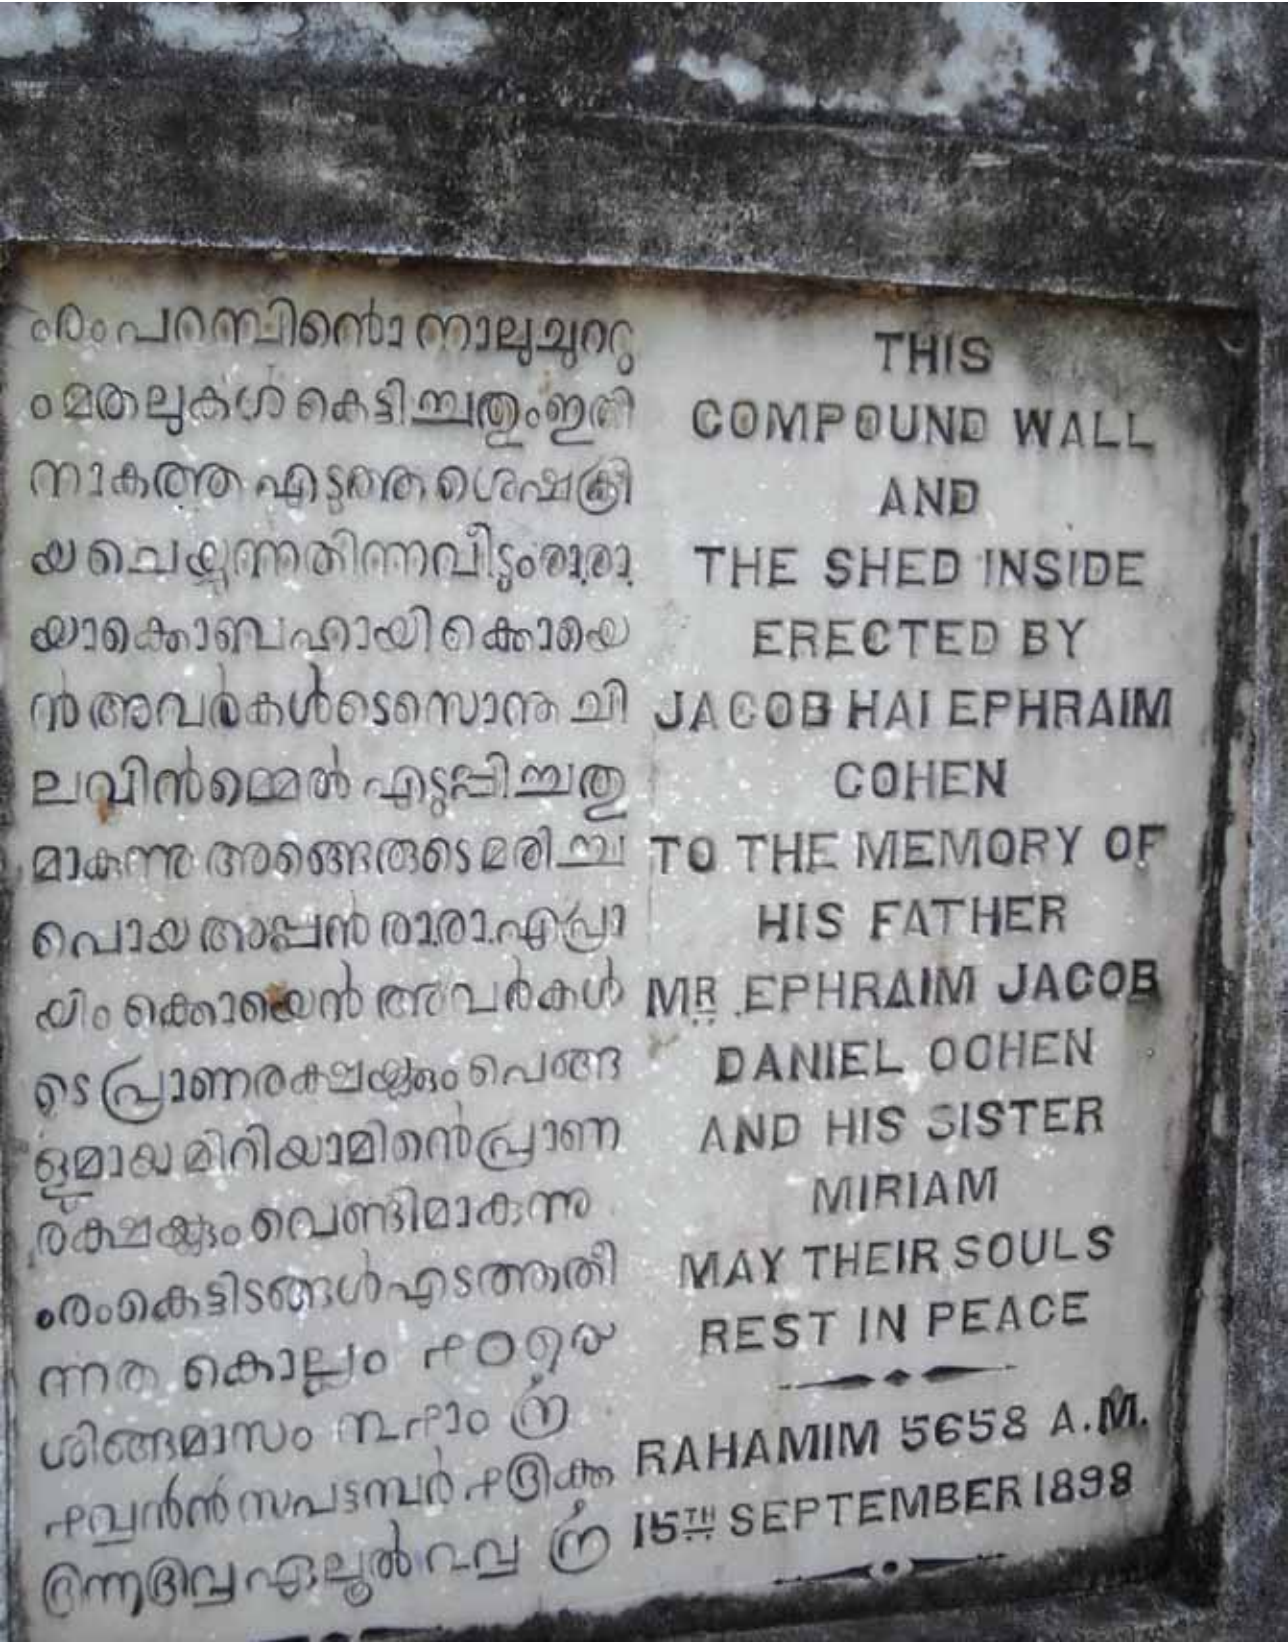 ൦രം പറമ്പിന്റൊ നാലുചുററു
ം മതലുകൾ കെട്ടിച്ചതുംഇതി
ന്നാകത്ത എടുത്ത ശെഷക്രീ
യ ചെയ്യുന്നതിന്നവീടുംരാ.രാ.
യാക്കൊബഹായി ക്കൊയെ
ൻ അവർകൾടെസൊന്ത ചി
ലവിൻമ്മെൽ എടുപ്പിച്ചതു
മാകുന്നു അങ്ങെരുടെ മരിച്ച
പൊയ അപ്പൻ രാ.രാ.എപ്രാ
യിം ക്കൊയെൻ അവർകൾ
ടെ പ്രാണരക്ഷയ്ക്കും പെങ്ങ
ളുമായ മിറിയാമിന്റെ പ്രാണ
രക്ഷയ്ക്കും വെണ്ടിമാകുന്നു
൦രംകെട്ടിടങ്ങൾഎടത്തുതീ
ന്നത കൊല്ലം
ശിങ്ങമാസം
സപട്ടമ്പർ
ഏലൂൽ
THIS
COMPOUND WALL
AND
THE SHED INSIDE
ERECTED BY
JACOB HAI EPHRAIM
COHEN
TO THE MEMORY OF
HIS FATHER
MR. EPHRAIM JACOB
DANIEL COHEN
AND HIS SISTER
MIRIAM
MAY THEIR SOULS
REST IN PEACE
RAHAMIM 5658 A.M.
15TH SEPTEMBER 1898